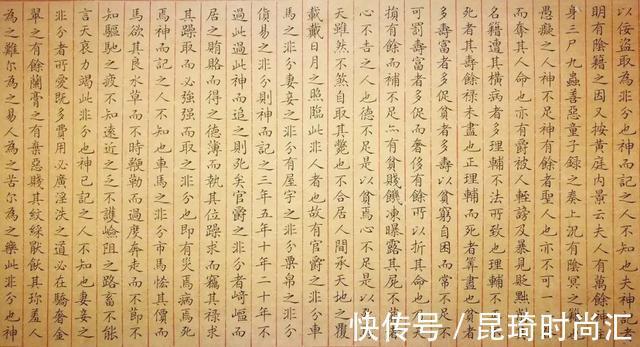 以佞盜取為非分也神記之人不知也夫神也者
明有陰籍之因又按黃庭內景云夫人有萬餘神
身三尸九蟲善惡童子錄之奏上況有陰冥之
愚癡之人神不足神有餘者聖人也亦不可一
而奪其人命也亦有爵被人輕謗及暴見貶黜
名籍遭其橫病者多理輔不法所致也理輔不
死者其壽餘祿未盡也正理輔而死者筭盡也貧者
多壽富者多促貧者多壽以貧窮自困而常不足
可罰壽富者多促而奢侈有餘所以折其命也天
損有餘而補不足亦有貧賤饑凍曝露其屍不
心不吉之人也德不足是以貧焉心不足是以死
天雖然不煞自取其斃也不合居人間承天地之覆
載戴日月之照臨此非人者也故有官爵之非分車
馬之非分妻妾之非分有屋宇之非分粟帛之非分
貨易之非分則神而記之三年五年十年二十年不
過此過此神而追之則死矣官爵之非分者崎嶇而
居之賄賂而得之德薄而執其位躁求而竊其祿求
其躁取而必強強而取之非分也即有災焉病焉死
焉神而記之人不知也車馬之非分市馬恡其價而
馬欲其良水草而不時鞭勒而過度奔走而不節不
知驅馳之疲不知遠近之乏不護嶮阻之路畜不能
言天哀力竭此非分也神已記之人不知也妻妾之
非分者所愛既多費用必廣淫泆之道必在驕奢金
翠之有餘蘭膏之有棄惡賤其紋綵厭飫其珍羞人
為之難尔為之易人為之苦尔為之樂此非分也神
快传号／昆琦时尚汇